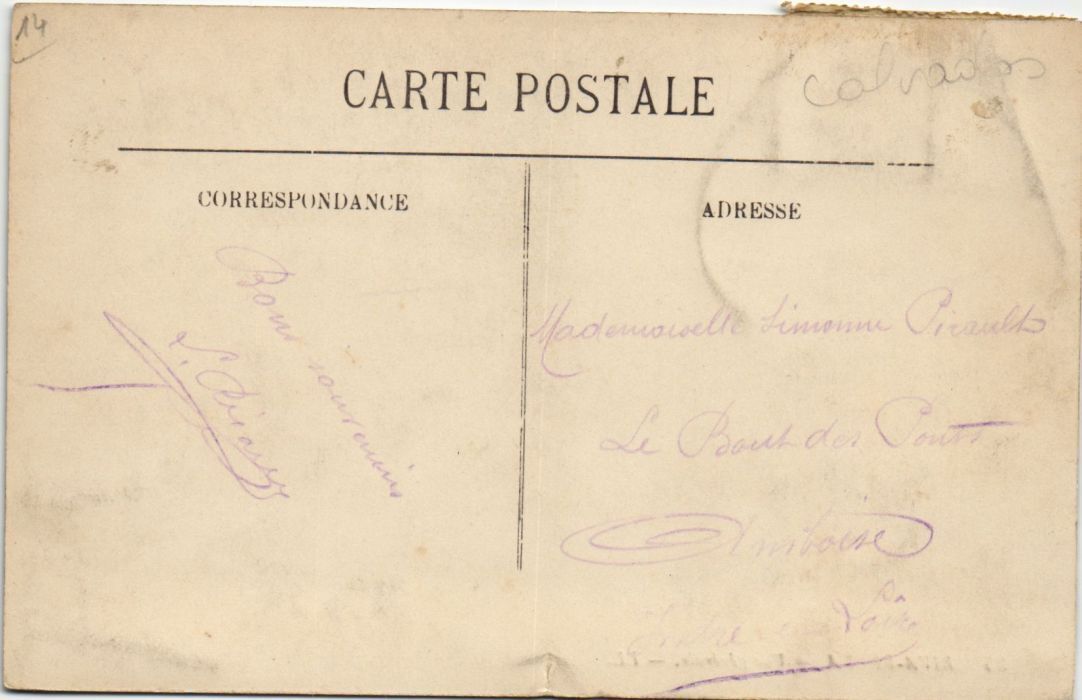 14
calvados
CARTE POSTALE
CORRESPONDANCE
ADRESSE
Bons souvenirs
L.
Mademoiselle Simonne Pirault
Le Bout des Ponts
Amboise
Indre et Loire